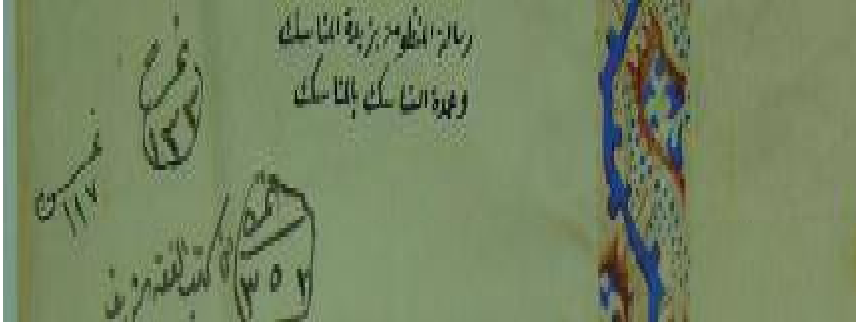 رسالة المنظومة بزبدة المناسك
وعمدة الناسك بالمناسك
نمرة
١٣٢
نمرة
١١٧
نمرة
٣٥٢
في كتب الفقه